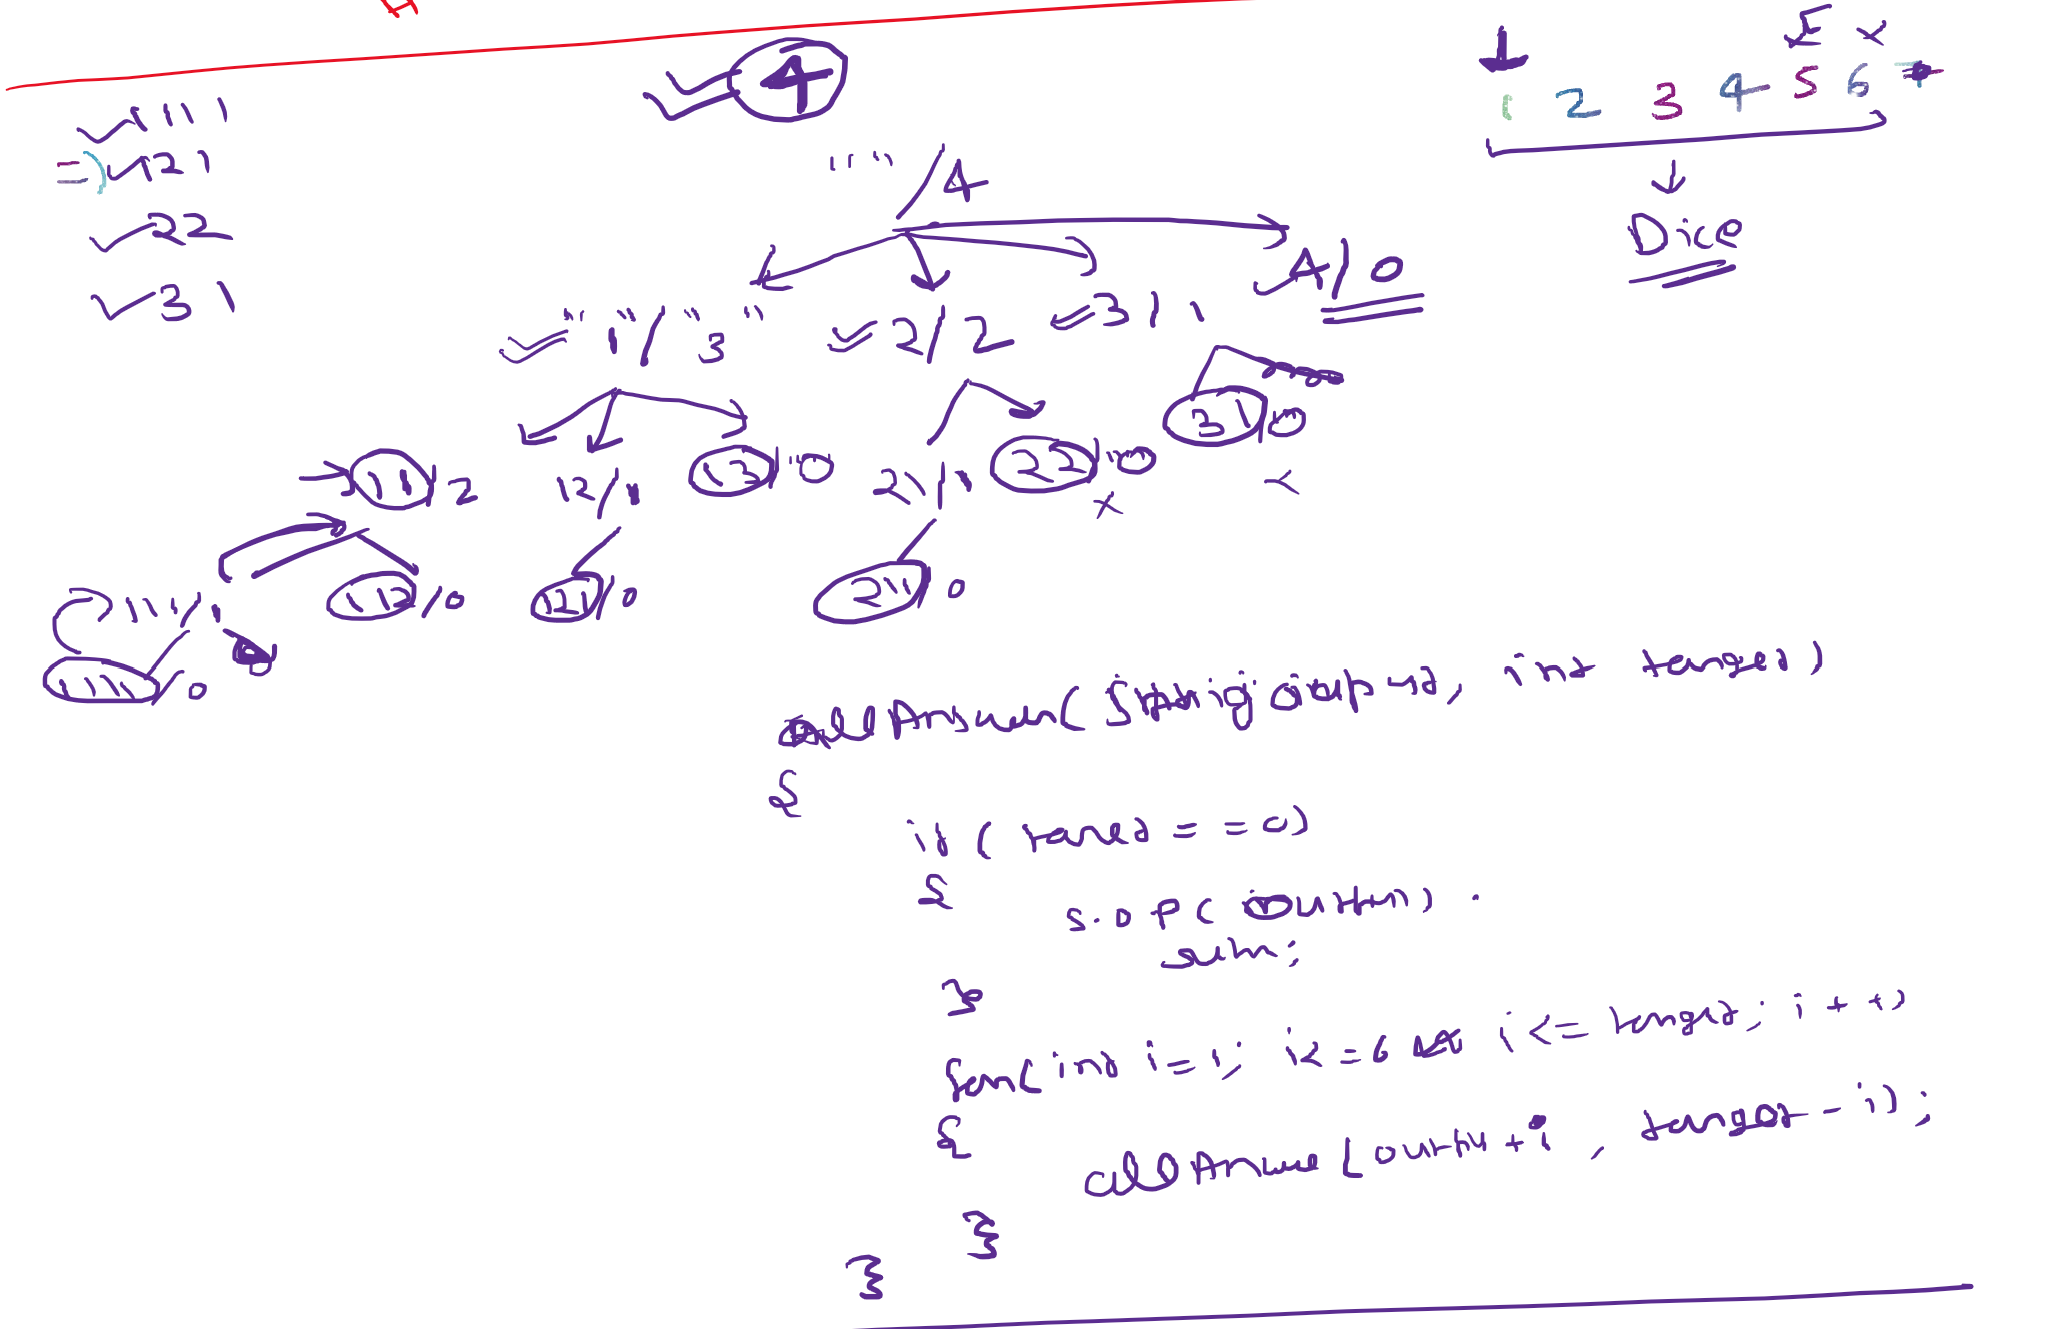 4
1 2 3 4 5 6 7
Dice
1111
=) 121
22
31
"" /4
"1" / "3"
2/2
3/1
4/0
11/2
12/1
13/"0
21/1
22/"0
31/0
111/1
112/0
121/0
211/0
1111/0
allAnswer( String output, int target)
{
if ( target == 0)
{
S.O.P( output) .
}
for( int i=1; i<=6 && i<= target; i++)
{
allAnswer( output+i , target - i);
}
}